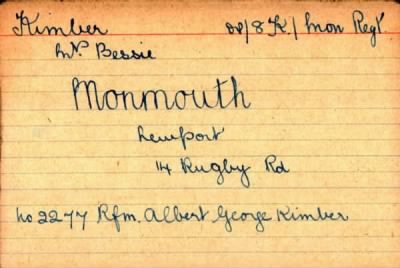 Kimber
Mrs Bessie
Monmouth
Newport
14 Rugby Rd
No 2277 Rfm. Albert George Kimber
Mon Regt